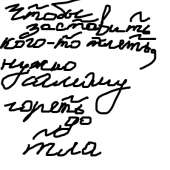 Чтобы
заставить
кого-то тлеть,
нужно
самому
гореть
до
тла